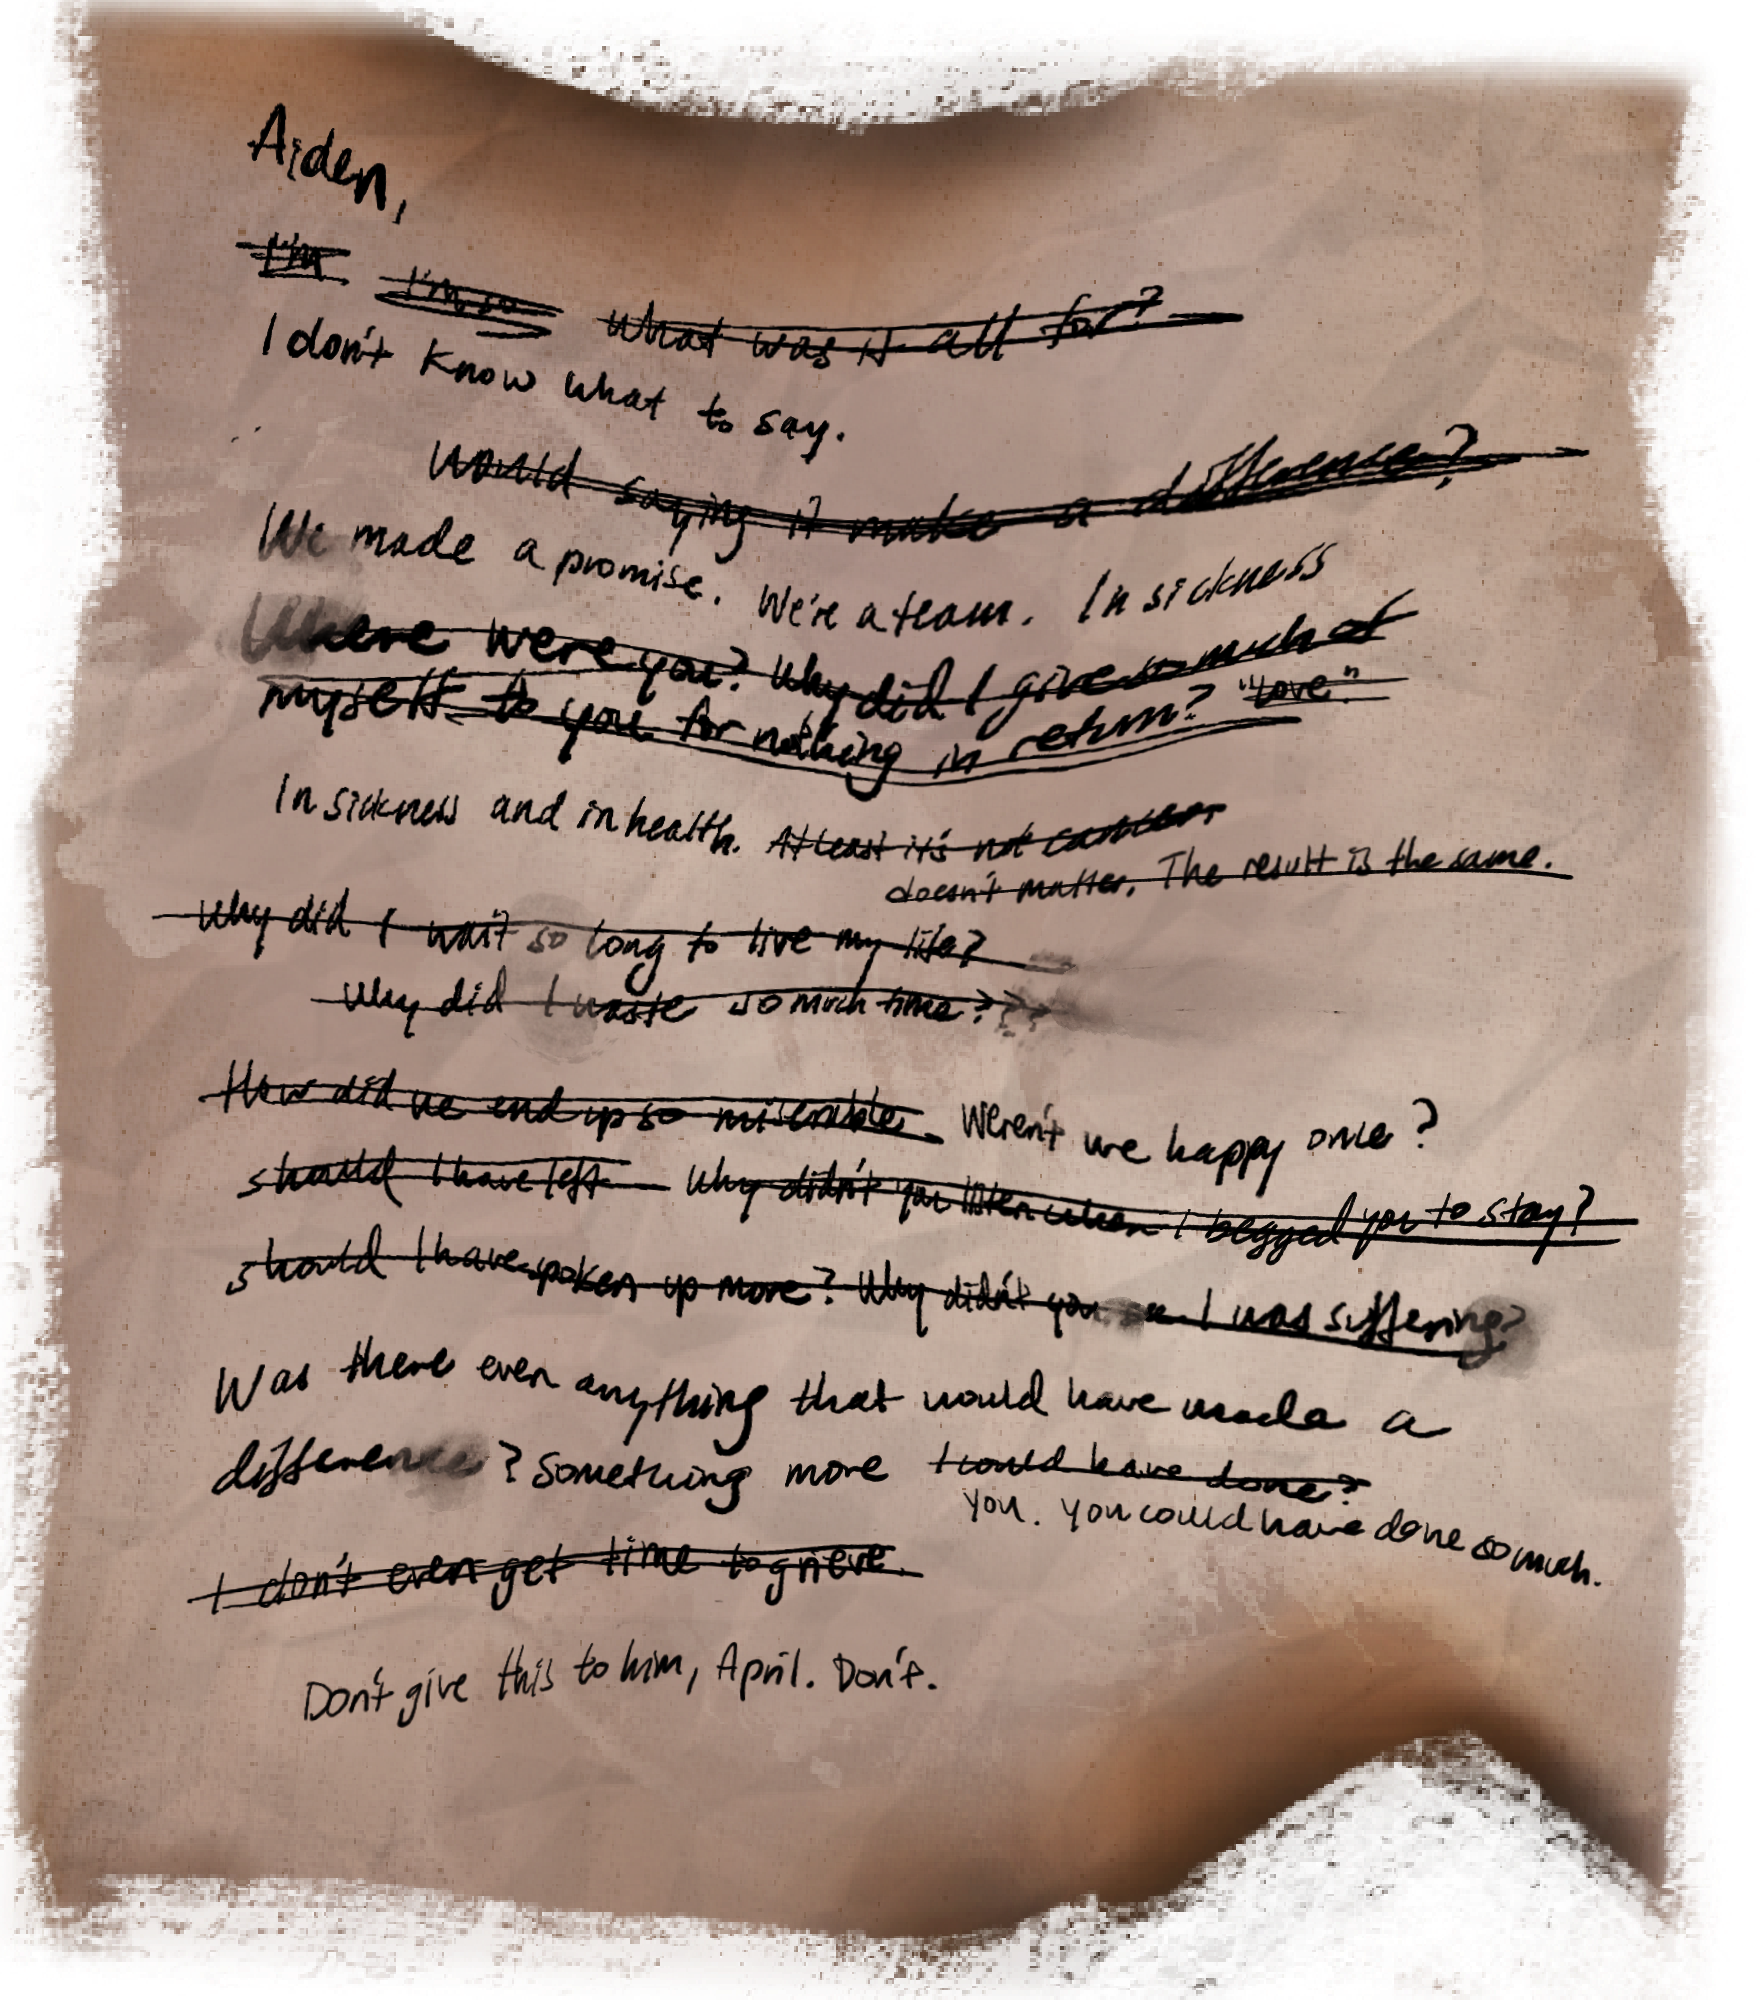 Aiden,
I'm I'm so what was it all for?
I don't know what to say.
Would saying it make a difference?
We made a promise. We're a team. In sickness
Where were you? Why did I give so much of
myself to you for nothing in return? "Love."
In sickness and in health. At least it's not cancer.
doesn't matter. The result is the same.
Why did I wait so long to live my life?
Why did I waste so much time???
How did we end up so miserable. Weren't we happy once?
should I have left Why didn't you listen when I begged you to stay?
should I have spoken up more? Why didn't you see I was suffering?
Was there even anything that would have made a
difference? Something more I could have done?
you. You could have done so much.
I don't even get time to grieve.
Don't give this to him, April. Don't.